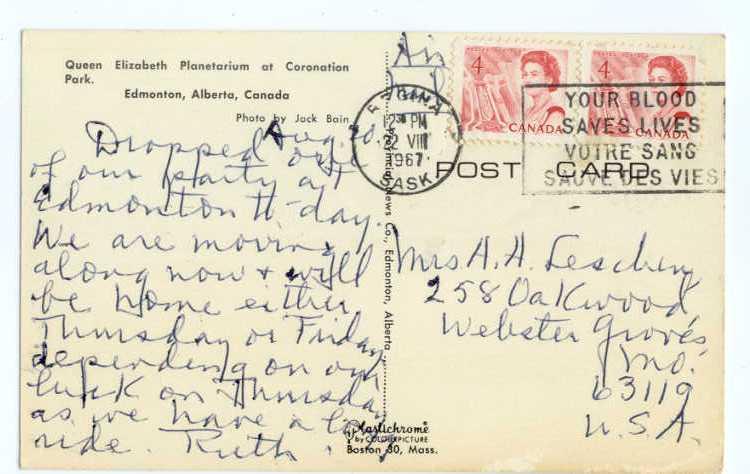 Queen Elizabeth Planetarium at Coronation
Park.
Edmonton, Alberta, Canada
Photo by Jack Bain.
Aug. 20.
Dropped one
of our party at
Edmonton to-day.
We are moving
along now + will
be home either
Thursday or Friday
depending on our
luck on Thursday
as we have a long
ride. Ruth.
Provincial News Co., Edmonton, Alberta
Plastichrome
by COLOURPICTURE
Boston 30, Mass.
Air
4 CANADA
4 CANADA
REGINA
PM
VIII
1967
SASK
YOUR BLOOD
SAVES LIVES
VOTRE SANG
SAUVE DES VIES
POST CARD
Mrs. A. H. Leschen
258 Oakwood
Webster Groves
Mo.
63119
U.S.A.